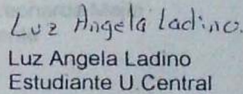 Luz Angela Ladino.
Luz Angela Ladino
Estudiante U.Central